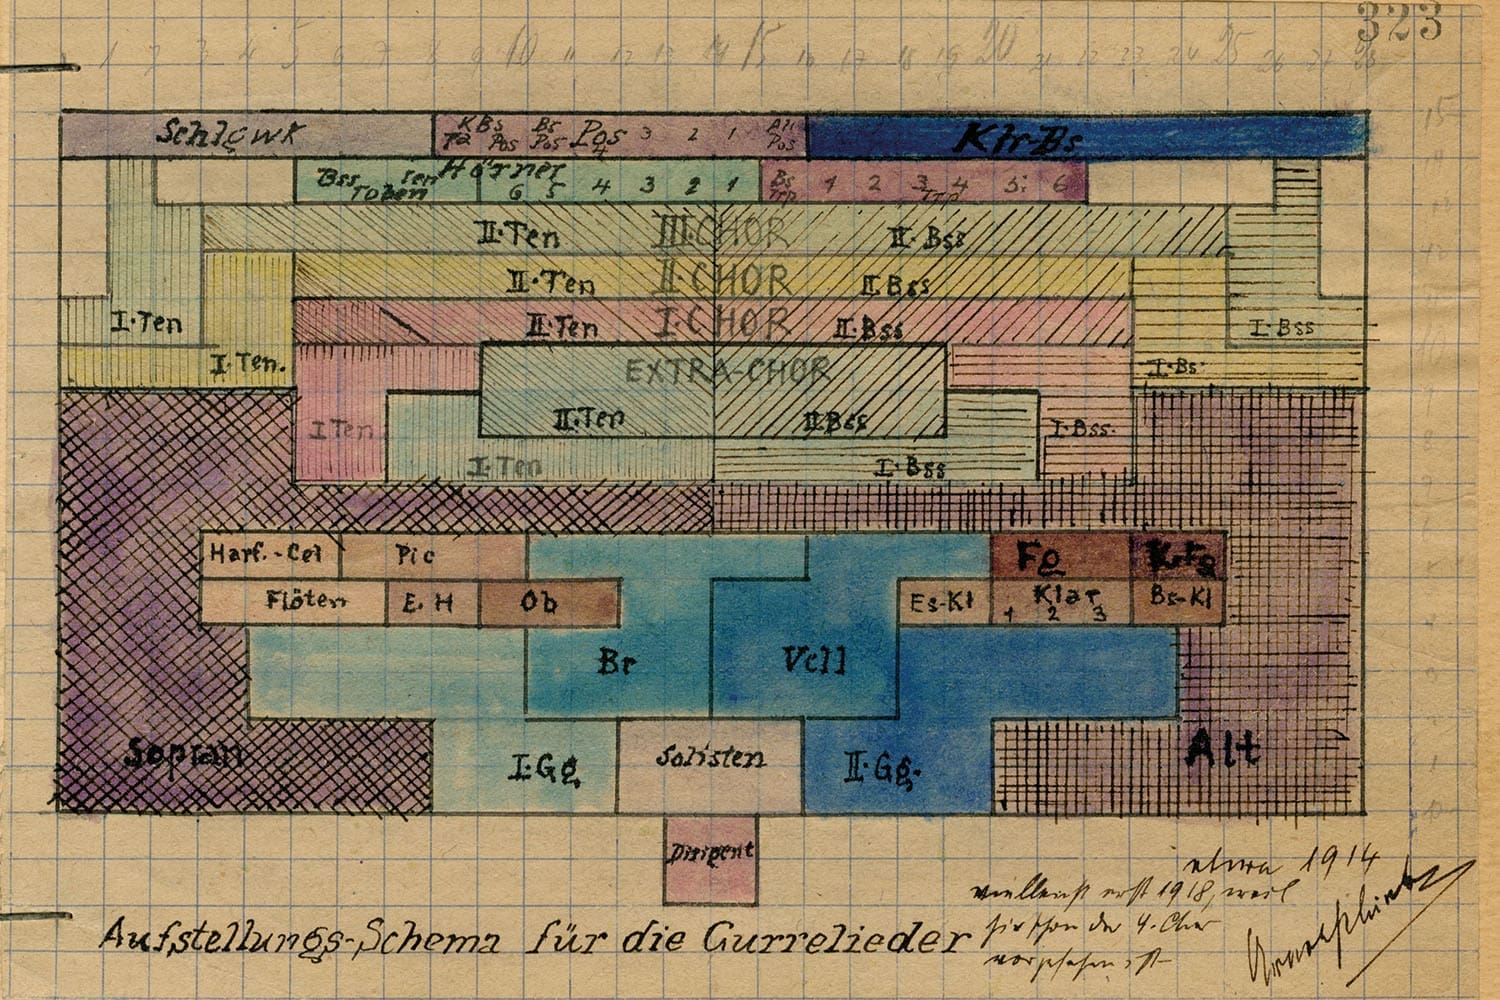 323
1 2 3 4 5 6 7 8 9 10 11 12 13 14 15 16 17 18 19 20 21 22 23 24 25 26 27 28
15
Schlgwk KBs Ta Pos Bs Pos Pos 4 3 2 1 Alt Pos Ktr-Bs
Bss Tuben Ten Hörner 6 5 4 3 2 1 Bs Trp 1 2 3 4 5 6 Trp
II·Ten III·CHOR II·Bss
II·Ten II·CHOR II·Bss
I·Ten II·Ten I·CHOR II·Bss I·Bss
I·Ten. EXTRA-CHOR I·Bs·
I Ten II·Ten II·Bss I·Bss·
I·Ten I·Bss
Harf.-Cel Pic Fg K.Fg
Flöten E.H Ob Es-Kl Klar 1 2 3 Bs-Kl
Br Vcll
Sopran I·Gg Solisten II·Gg· Alt
Dirigent
etwa 1914
vielleicht erst 1918, weil
hier schon der 4. Chor
vorgesehen ist
Aufstellungs-Schema für die Gurrelieder
Arnold Schönberg